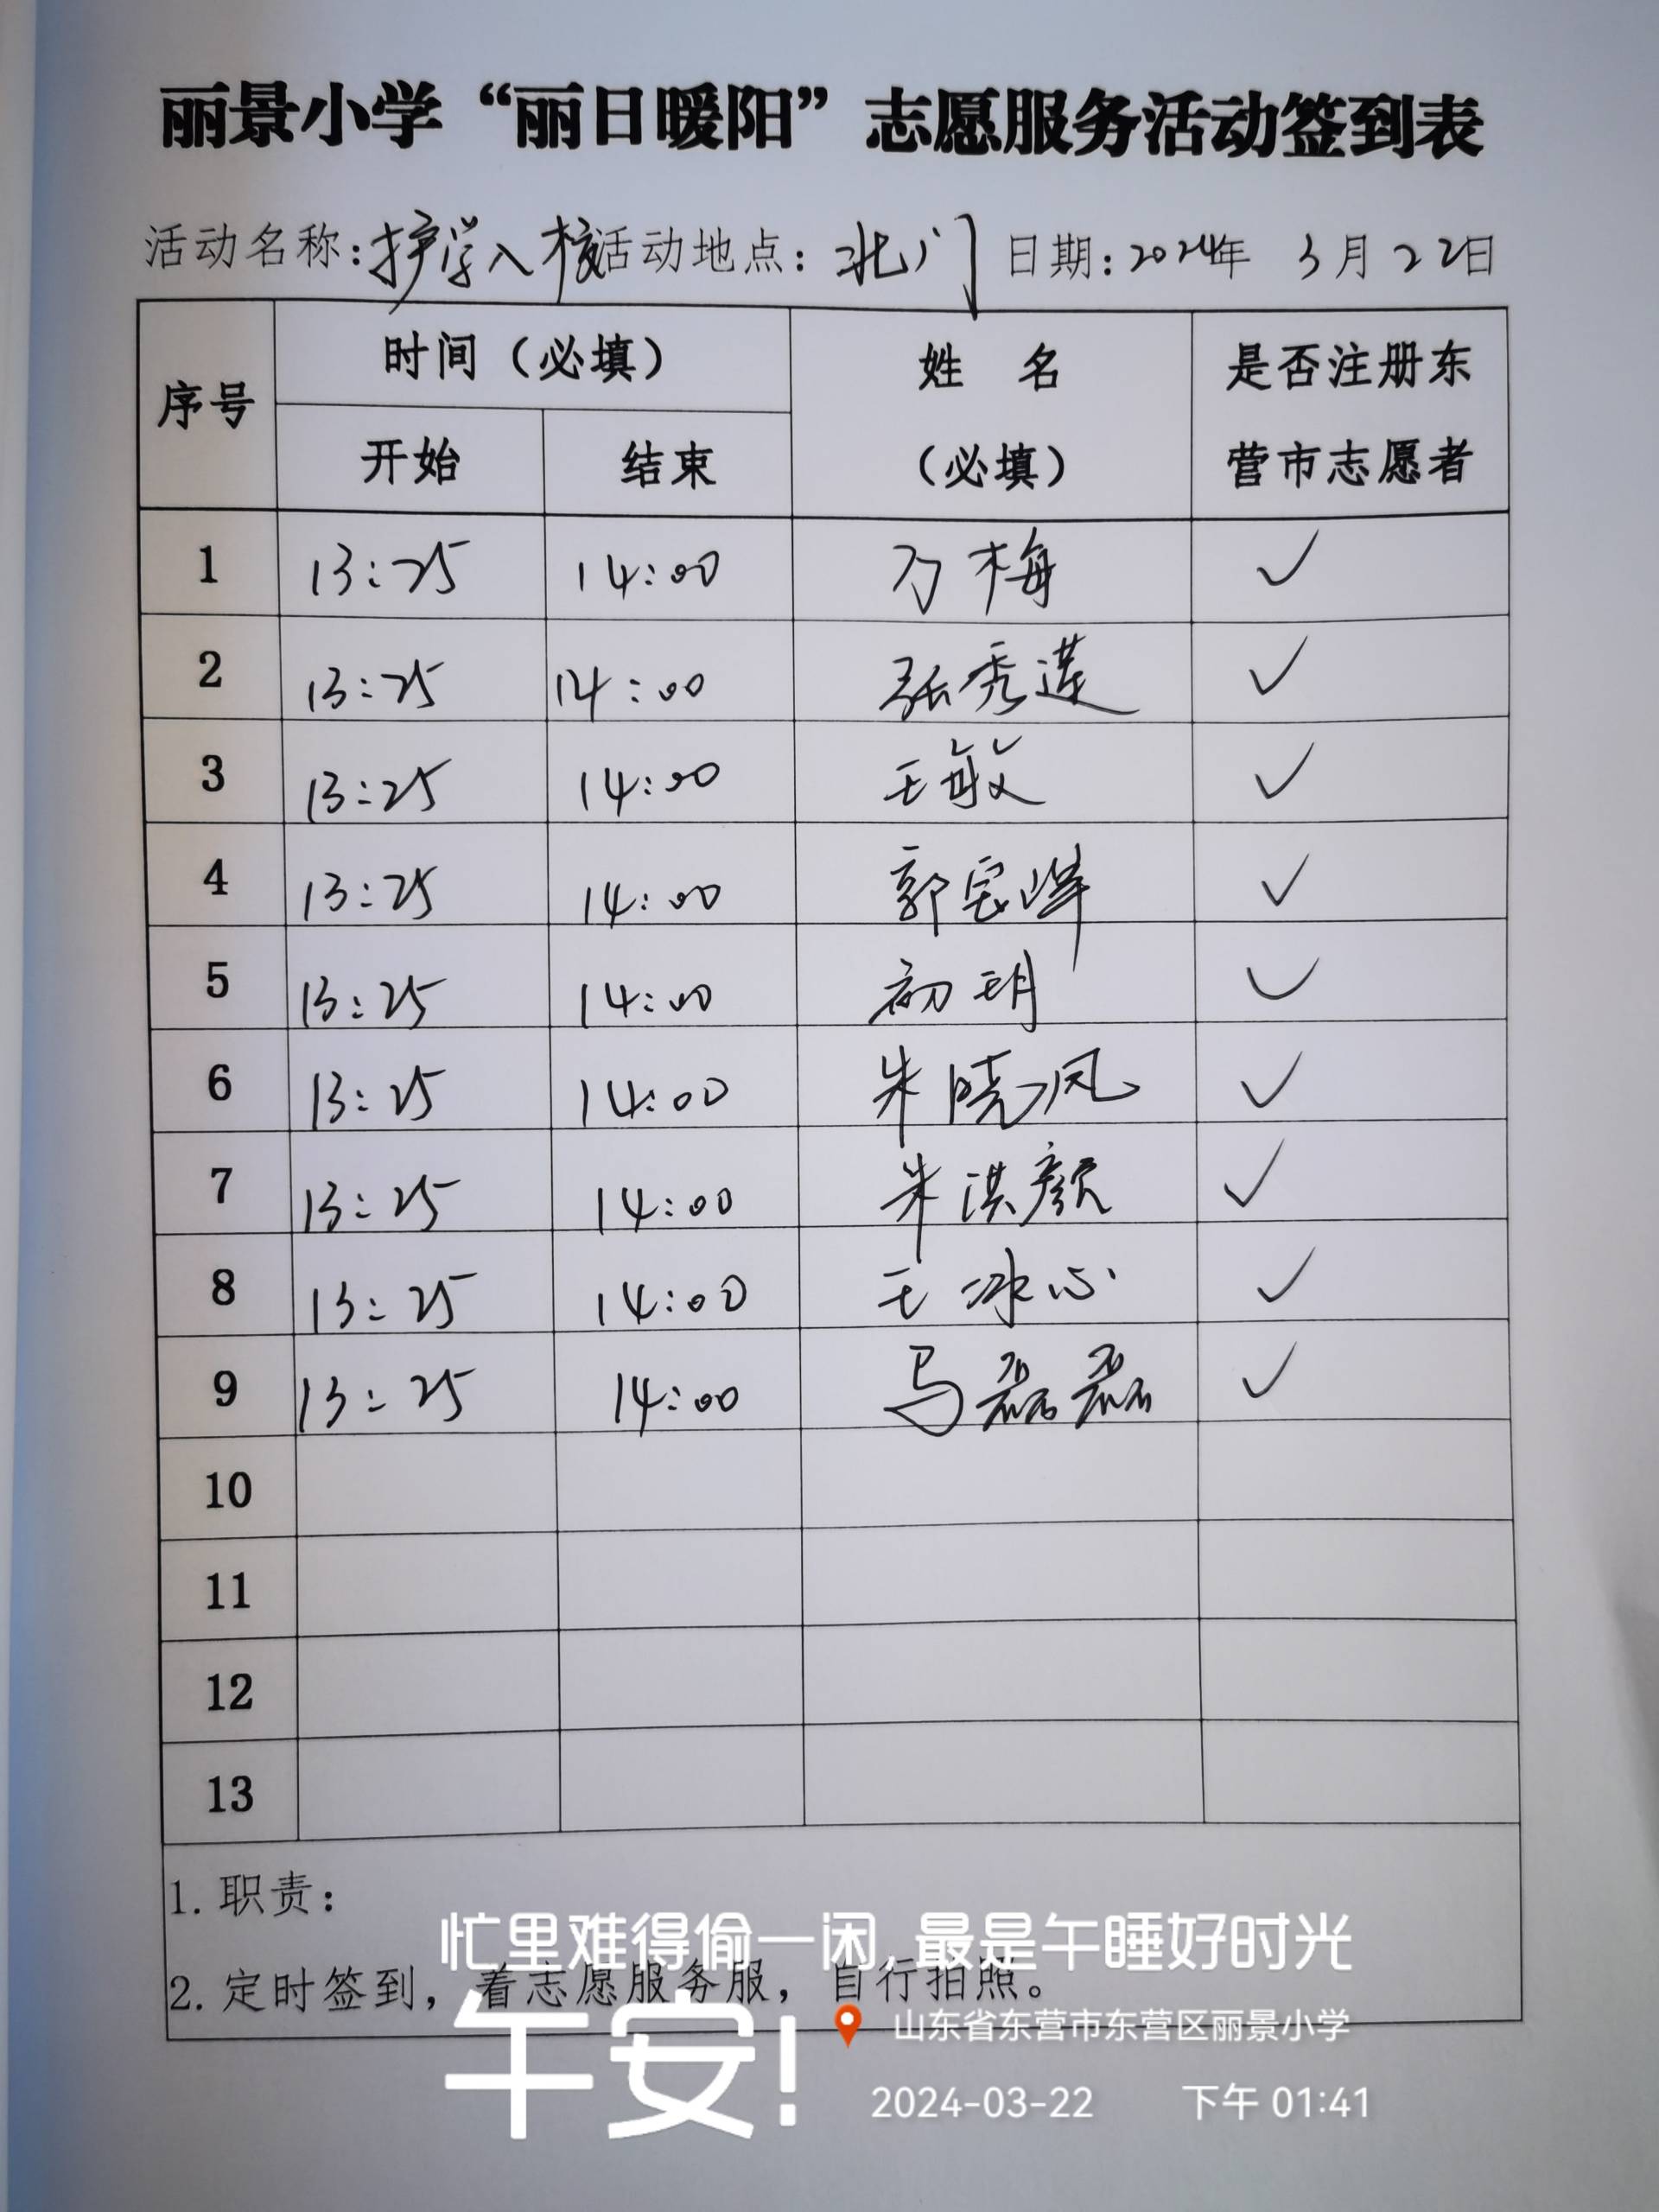 丽景小学“丽日暖阳”志愿服务活动签到表
活动名称:护学入校活动地点:北门 日期:2024年 3月22日
序号 时间（必填） 姓 名 （必填） 是否注册东营市志愿者
开始 结束
1 13:25 14:00 万梅 ✓
2 13:25 14:00 张秀莲 ✓
3 13:25 14:00 王敏 ✓
4 13:25 14:00 郭宝峰 ✓
5 13:25 14:00 初玥 ✓
6 13:25 14:00 朱晓凤 ✓
7 13:25 14:00 朱洪颜 ✓
8 13:25 14:00 王冰心 ✓
9 13:25 14:00 马磊磊 ✓
10
11
12
13
1.职责:
忙里难得偷一闲,最是午睡好时光
2.定时签到，着志愿服务服，自行拍照。
午安!
山东省东营市东营区丽景小学
2024-03-22 下午 01:41